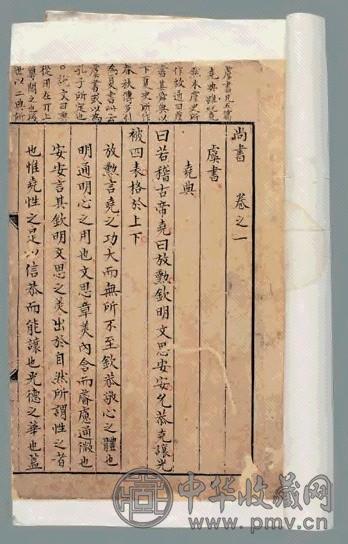 尚書　卷之一
虞書
堯典
曰若稽古帝堯曰放勳欽明文思安安允恭克讓光
被四表格於上下
放勳言堯之功大而無所不至欽恭敬心之體也
明通明心之用也文思章美內含而睿慮通微也
安安言其欽明文思之美出於自然所謂性之者
也惟堯性之是以信恭而能讓也光德之華也蓋
中华收藏网
www.pmv.cn